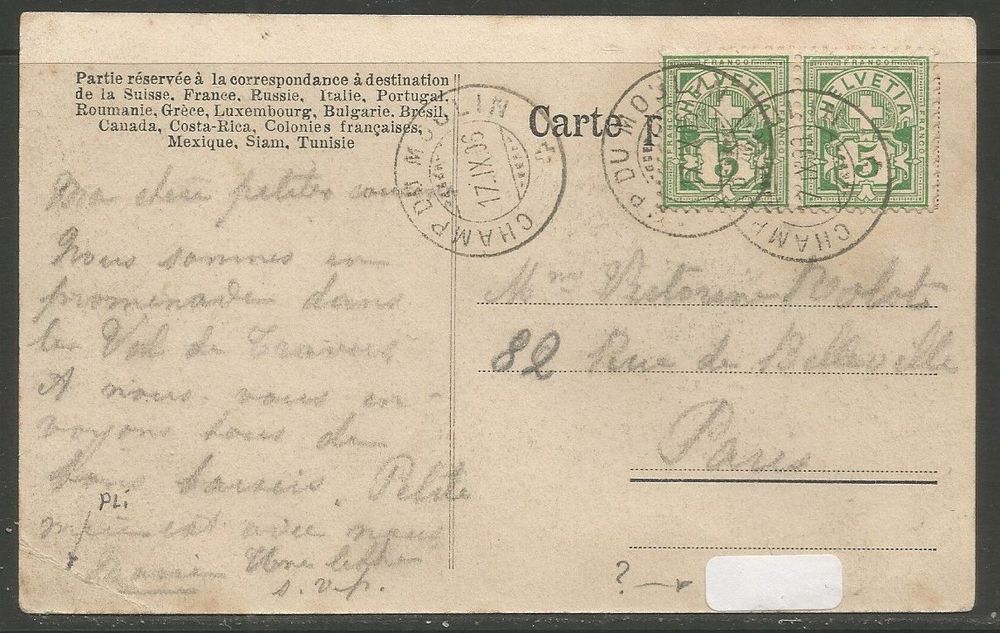 Partie réservée à la correspondance à destination
de la Suisse, France, Russie, Italie, Portugal,
Roumanie, Grèce, Luxembourg, Bulgarie, Brésil,
Canada, Costa-Rica, Colonies françaises,
Mexique, Siam, Tunisie
Carte p
FRANCO FRANCO
HELVETIA HELVETIA
5 5
CHAMP DU MOULIN
17.IX.06
CHAMP DU MO
CHAMP
Ma chère petites
Nous sommes en
promenade dans
le Val de Travers
A nous vous en-
voyons tous de
bons baisers. Petite
est avec nous
Une lettre
s.v.p.
PLi
Mme Victorine
82 Rue de Belleville
Paris
?